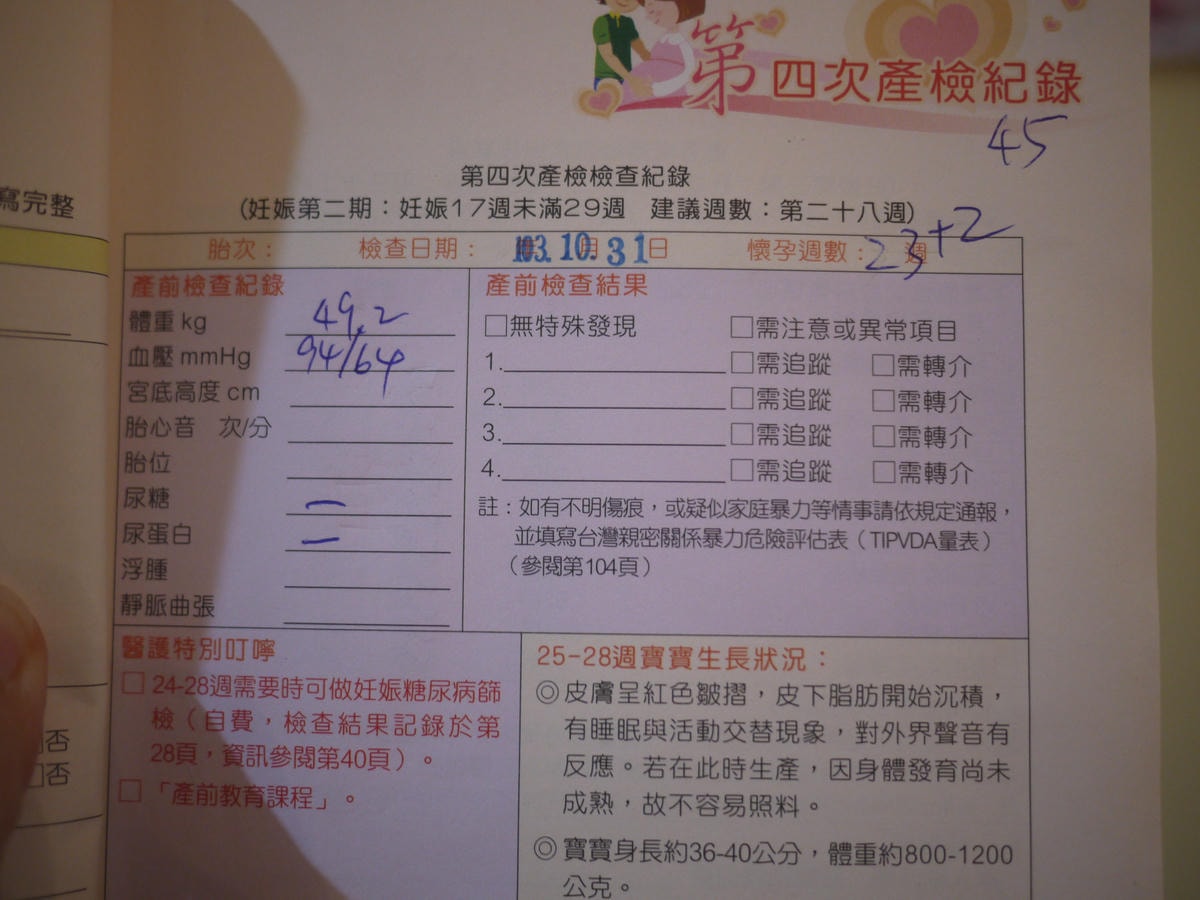 第四次產檢紀錄
45
第四次產檢檢查紀錄
(妊娠第二期：妊娠17週未滿29週 建議週數：第二十八週)
胎次： 檢查日期： 103.10.31日 懷孕週數：23+2週
產前檢查紀錄
體重 kg 49.2
血壓 mmHg 94/64
宮底高度 cm
胎心音 次/分
胎位
尿糖 －
尿蛋白 －
浮腫
靜脈曲張
產前檢查結果
□無特殊發現 □需注意或異常項目
1. □需追蹤 □需轉介
2. □需追蹤 □需轉介
3. □需追蹤 □需轉介
4. □需追蹤 □需轉介
註：如有不明傷痕，或疑似家庭暴力等情事請依規定通報，
並填寫台灣親密關係暴力危險評估表（TIPVDA量表）
（參閱第104頁）
醫護特別叮嚀
□ 24-28週需要時可做妊娠糖尿病篩
檢（自費，檢查結果記錄於第
28頁，資訊參閱第40頁）。
□ 「產前教育課程」。
25-28週寶寶生長狀況：
◎皮膚呈紅色皺摺，皮下脂肪開始沉積，
有睡眠與活動交替現象，對外界聲音有
反應。若在此時生產，因身體發育尚未
成熟，故不容易照料。
◎寶寶身長約36-40公分，體重約800-1200
公克。
寫完整
□否
□否